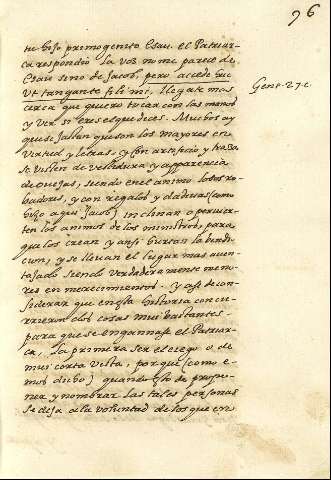 96
tu hijo primogenito Esau. el Patriar-
ca respondio la voz no me parece de
Esau sino de Jacob, pero accede huc
ut tangam te fili mi, llegate mas
cerca que quiero tocar con las manos
y ver si eres el que dices. Muchos ay
Genes. 27. c
que se hallan que son los mayores en
virtud y letras, y con artificio y traza
se visten de vestidura y apparencia
de ovejas, siendo en el animo lobos ro-
badores, y con regalos y dadivas (como
hizo aqui Jacob) inclinan o pervier-
ten los animos de los ministros, para
que los crean y ansi hurtan la bendi-
cion, y se llevan el lugar mas aven-
tajado siendo verdaderamente meno-
res en merecimientos. y asi de con-
siderar que en esta historia concu-
rrieron dos cosas mui bastantes
para que se engannase el Patriar-
ca, la primera ser el ciego o de
mui corta vista, porque (como e-
mos dicho) quando esto de propo-
ner y nombrar las tales personas
se deja a la voluntad de los que en